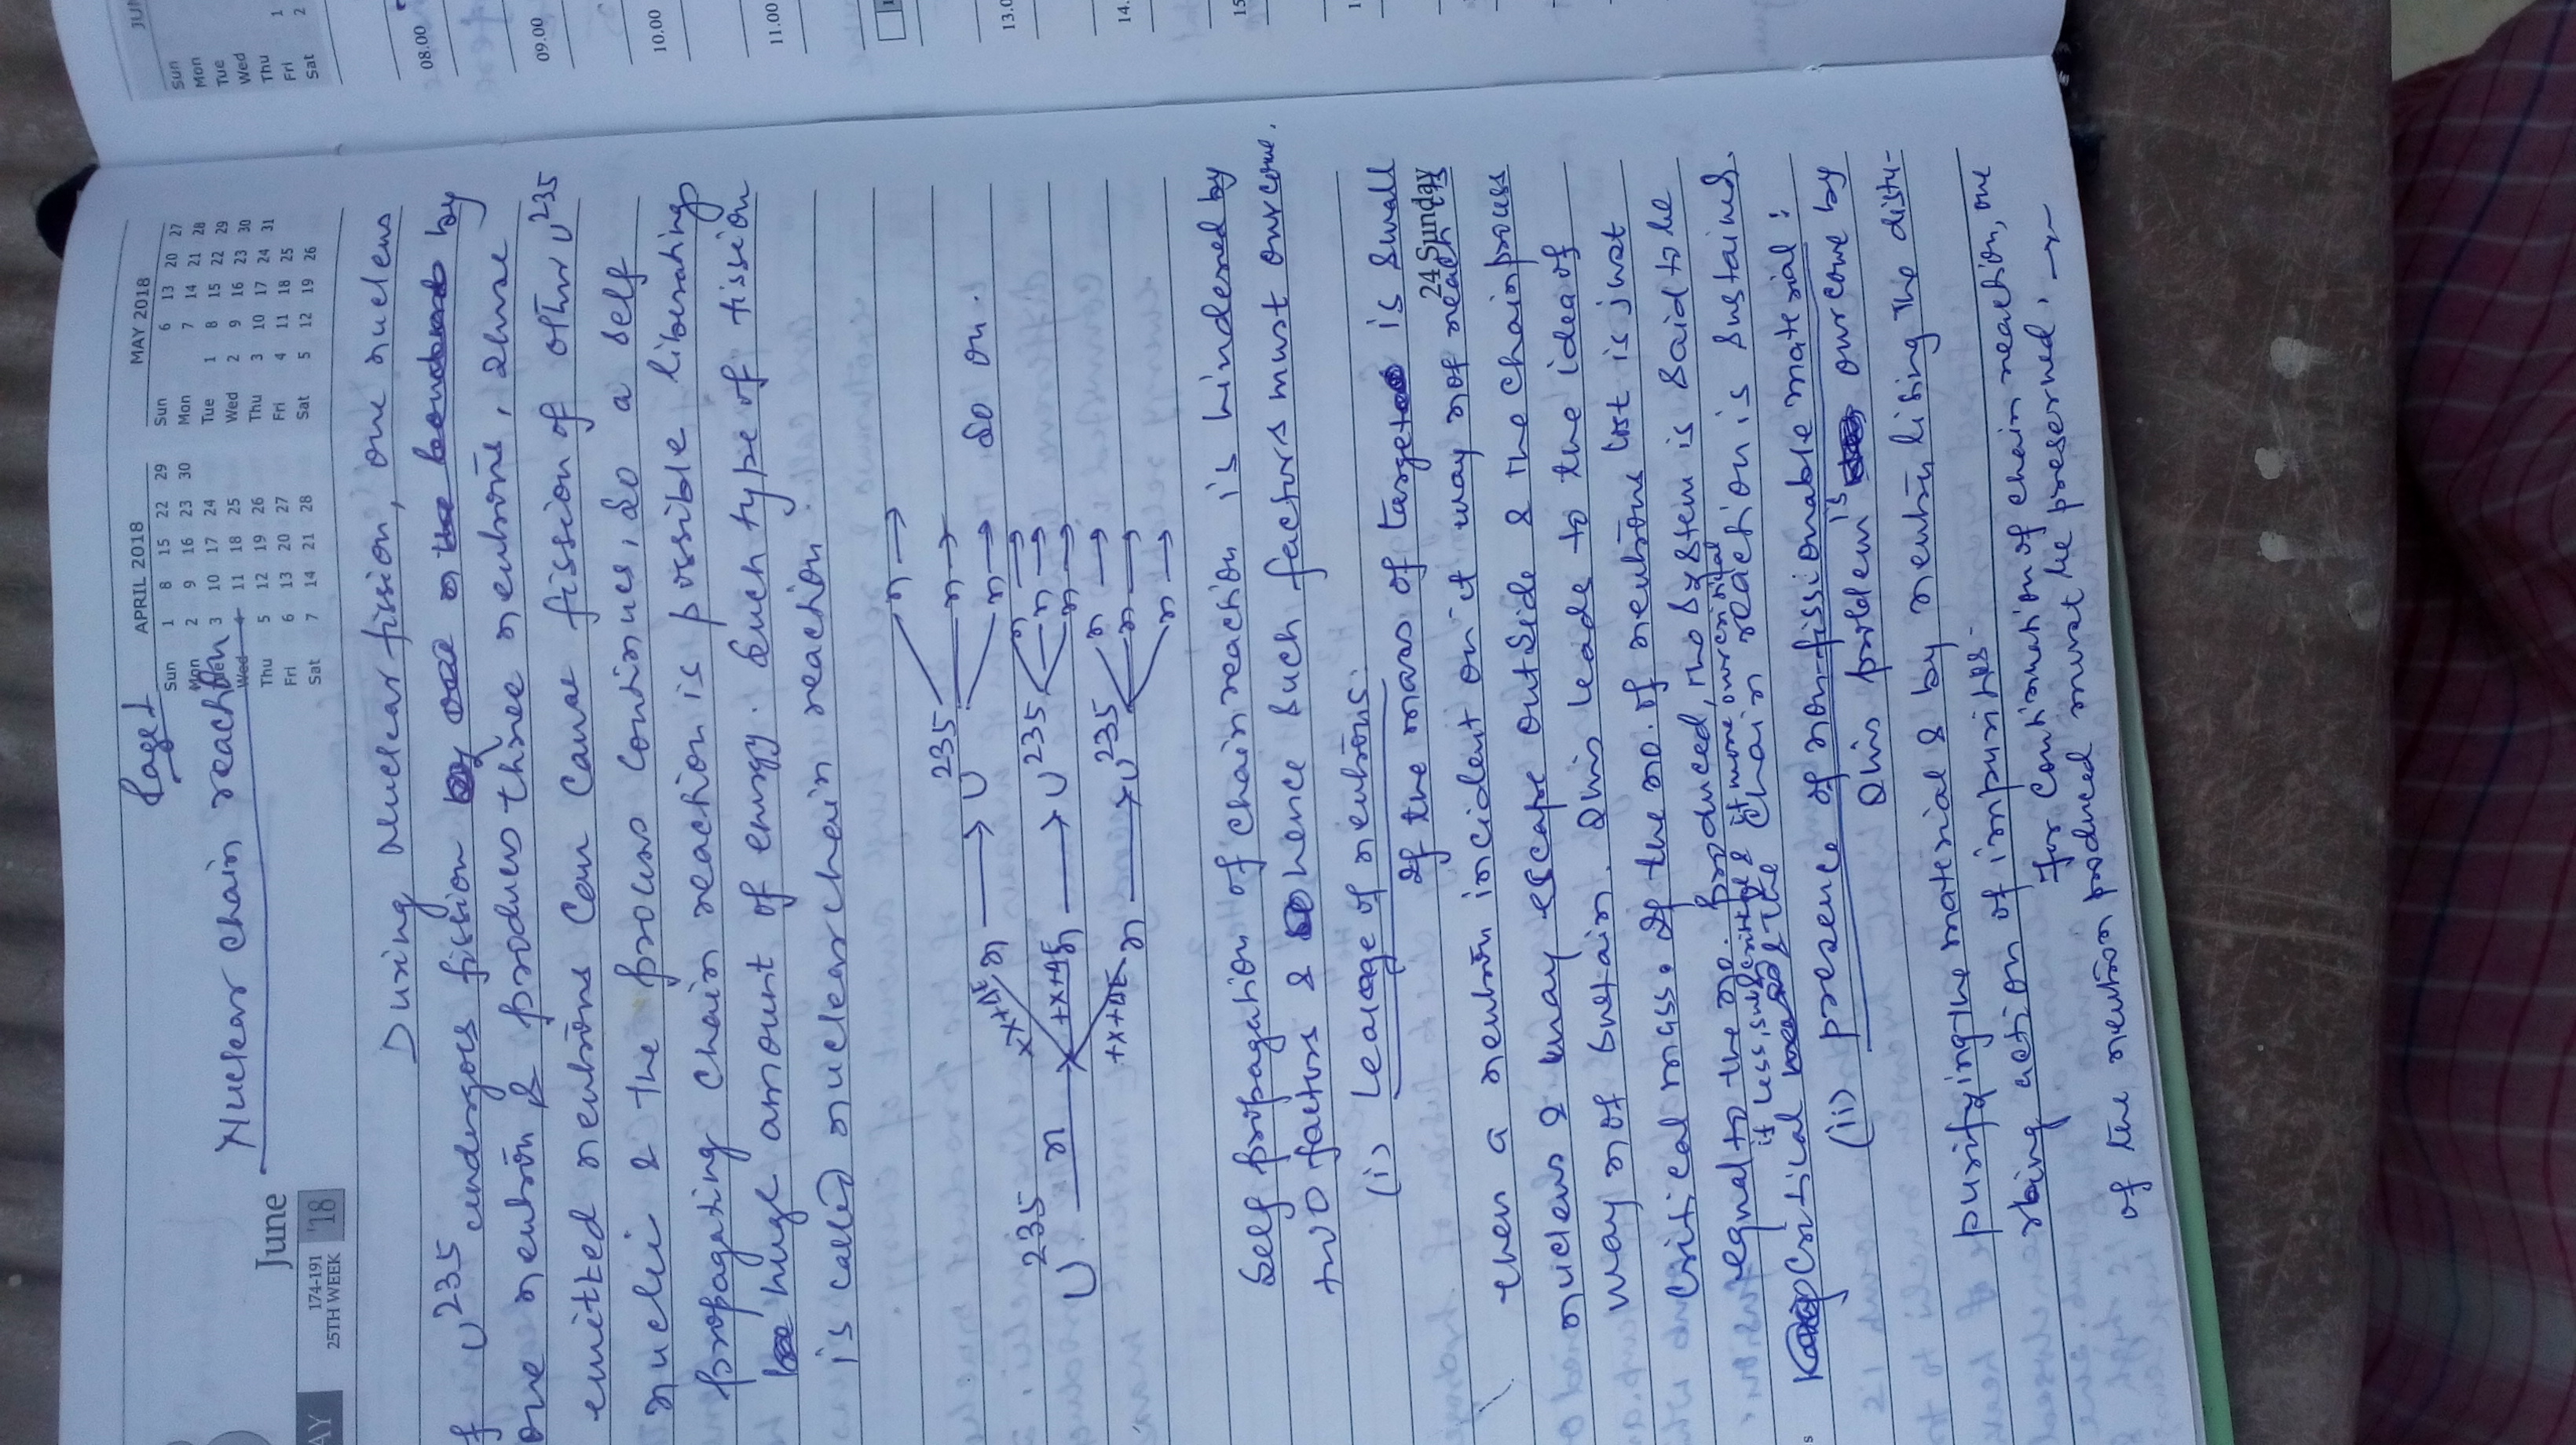 Page 1
APRIL 2018
Sun 1 8 15 22 29
Mon 2 9 16 23 30
3 10 17 24
Wed 4 11 18 25
Thu 5 12 19 26
Fri 6 13 20 27
Sat 7 14 21 28
MAY 2018
Sun 6 13 20 27
Mon 7 14 21 28
Tue 1 8 15 22 29
Wed 2 9 16 23 30
Thu 3 10 17 24 31
Fri 4 11 18 25
Sat 5 12 19 26
June
174-191
25TH WEEK '18
Nuclear chain reaction
During nuclear fission, one nucleus
f U235 undergoes fission by
one neutron & produces three neutrons, these
emitted neutrons can cause fission of other U235
nuclei & the process continues, so a self
propagating chain reaction is possible liberating
huge amount of energy. Such type of fission
is called nuclear chain reaction.
n →
x+x+ΔE n → U235 n →
n →
n → so on.
U235 n x+x+ΔE n → U235 n →
n →
n →
+x+ΔE n → U235 n →
n →
Self propagation of chain reaction is hindered by
two factors & hence such factors must overcome.
(i) Leakage of neutrons:
If the mass of target is small
24 Sunday
then a neutron incident on it may not reach its
nucleus & may escape outside & the chain process
may not sustain. This leads to the idea of
Critical mass. If the no. of neutrons lost is just
equal to the no. produced, the system is said to be
it less, subcritical & it more overcritical
Critical & the chain reaction is sustained.
(ii) presence of non-fissionable material:
This problem is overcome by
purifying the material & by neutralising the distu-
rbing action of impurities.
For continuation of chain reaction, one
of the neutron produced must be preserved.
JUN
Sun
Mon
Tue
Wed
Thu
Fri 1
Sat 2
08.00
09.00
10.00
11.00
13.0
14.
15